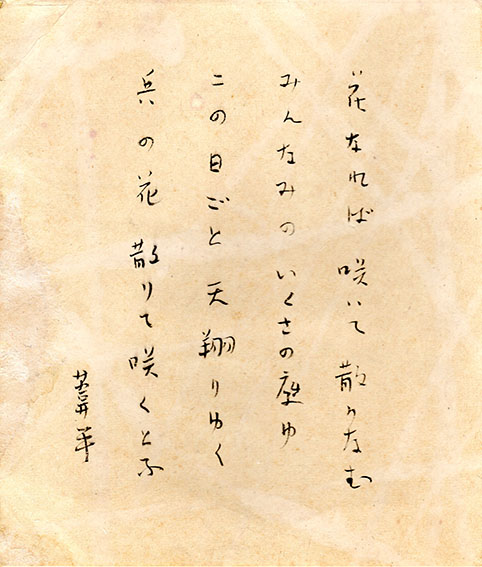 花なれば 咲いて 散りなむ
みんなみの いくさの 塵ゆ
この日ごと 天 翔りゆく
兵の花 散りて咲くとふ
葦平